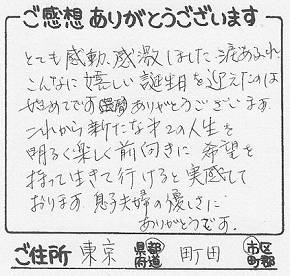 ご感想 ありがとうございます
とても感動、感激しました 涙あふれ
こんなに嬉しい誕生日を迎えたのは
始めてです ありがとうございます
これから新たな才2の人生を
明るく楽しく前向きに 希望を
持って生きて行けると実感して
おります 息子夫婦の優しさに
ありがとうです.
ご住所 東京 都道府県 町田 市区町郡